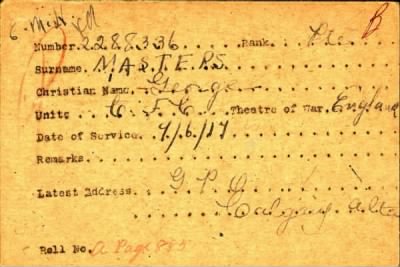 B
Number. 2288336 Rank. Pte
Surname. MASTERS
Christian Name. George
Unit. C F C Theatre of War. England
Date of Service. 9/6/17
Remarks.
Latest Address. G P O
Calgary Alta
Roll No. A Page 885